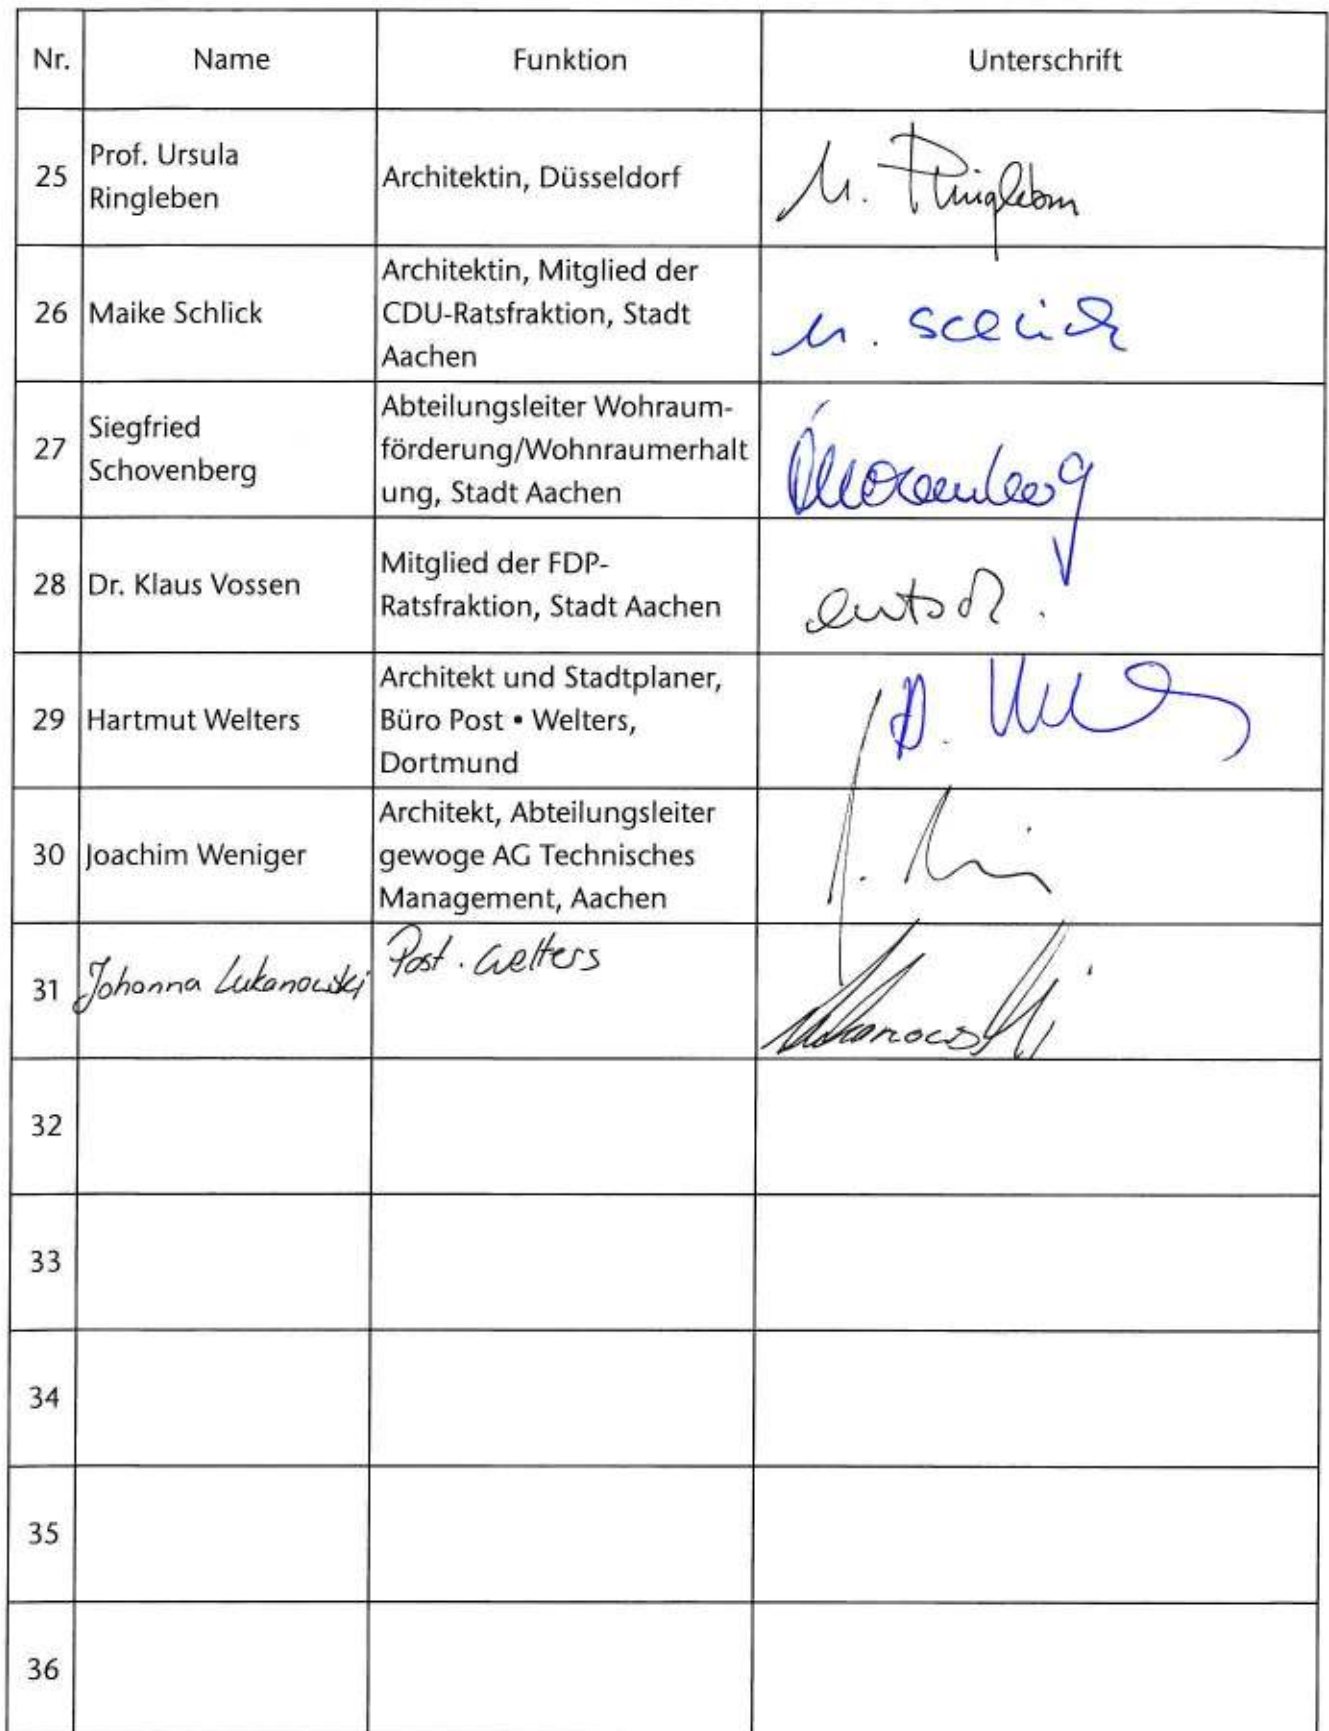 Nr. Name Funktion Unterschrift
25
Prof. Ursula
Ringleben
Architektin, Düsseldorf
U. Ringleben
26
Maike Schlick
Architektin, Mitglied der
CDU-Ratsfraktion, Stadt
Aachen
M. Schlick
27
Siegfried
Schovenberg
Abteilungsleiter Wohraum-
förderung/Wohnraumerhalt
ung, Stadt Aachen
28
Dr. Klaus Vossen
Mitglied der FDP-
Ratsfraktion, Stadt Aachen
entsch.
29
Hartmut Welters
Architekt und Stadtplaner,
Büro Post • Welters,
Dortmund
30
Joachim Weniger
Architekt, Abteilungsleiter
gewoge AG Technisches
Management, Aachen
31
Johanna Lukanowski
Post . Welters
Lukanowski
32
33
34
35
36